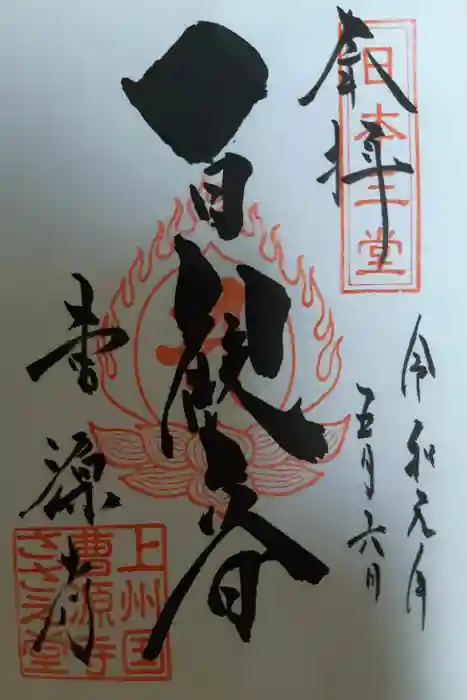 奉拝
日本三堂
令和元年
五月六日
百観音
曹源寺
上州国
曹源寺